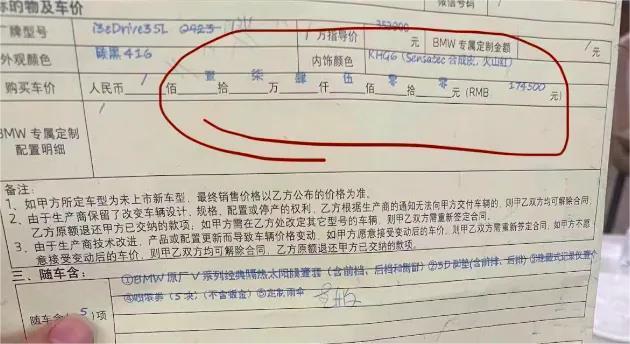 标的物及车价
微信号码
厂牌型号 i3eDrive35L 0423 厂方指导价 353900 元 BMW 专属定制金额 / 元
外观颜色 碳黑416 内饰颜色 KHGG (Sensatec 合成皮, 火山红)
购买车价 人民币 / 佰 壹 拾 柒 万 肆 仟 伍 佰 零 拾 零 元 (RMB 174500 元)
BMW 专属定制
配置明细 /
备注:
1、如甲方所定车型为未上市新车型,最终销售价格以乙方公布的价格为准。
2、由于生产商保留了改变车辆设计、规格、配置或停产的权利,乙方根据生产商的通知无法向甲方交付车辆的,则甲乙双方均可解除合同,
乙方原额退还甲方已交纳的款项。如甲方需在乙方处改定其它型号的车辆,则甲乙双方需重新签定合同。
3、由于生产商技术改进、产品或配置更新而导致车辆价格变动,如甲方愿意接受变动后的车价,则甲乙双方需重新签定合同,如甲方不愿
意接受变动后的车价,则甲乙双方均可解除合同,乙方原额退还甲方已交纳的款项。
三、随车含:
①BMW原厂V系列经典隔热太阳膜壹套(含前档、后档和侧窗)②5D脚垫(含前排、后排)③隐藏式记录仪壹个
④喷漆券(5块;(不含钣金)⑤定制雨伞
随车含(5)项